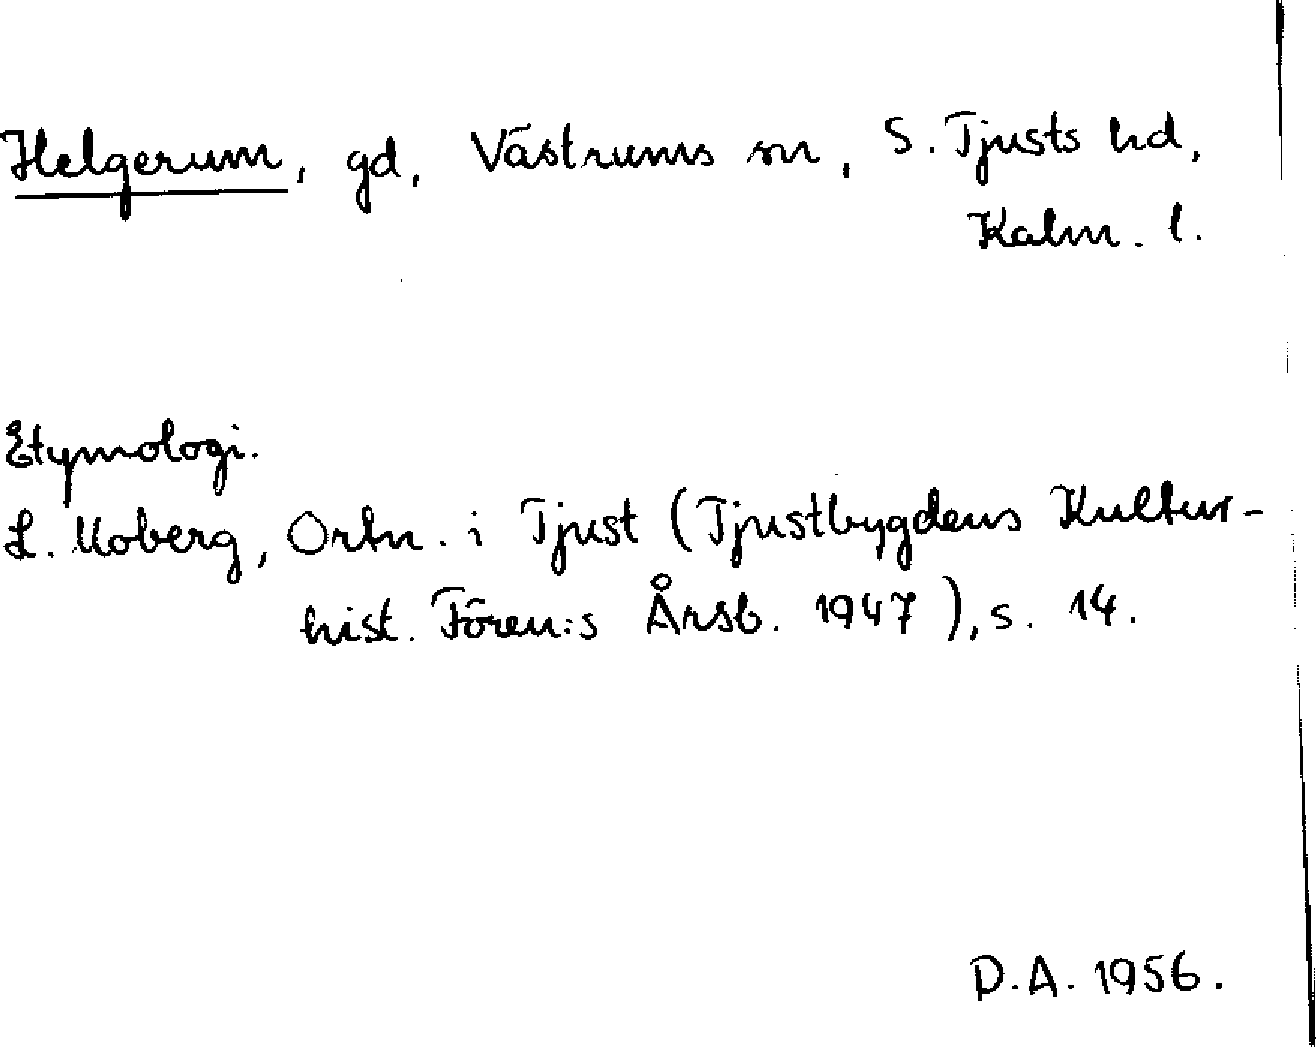 Helgerum, gd, Västrums sn, S. Tjusts hd,
Kalm. l.
Etymologi.
L. Moberg, Ortn. i Tjust (Tjustbygdens Kultur-
hist. Fören:s Årsb. 1947), s. 14.
D.A. 1956.